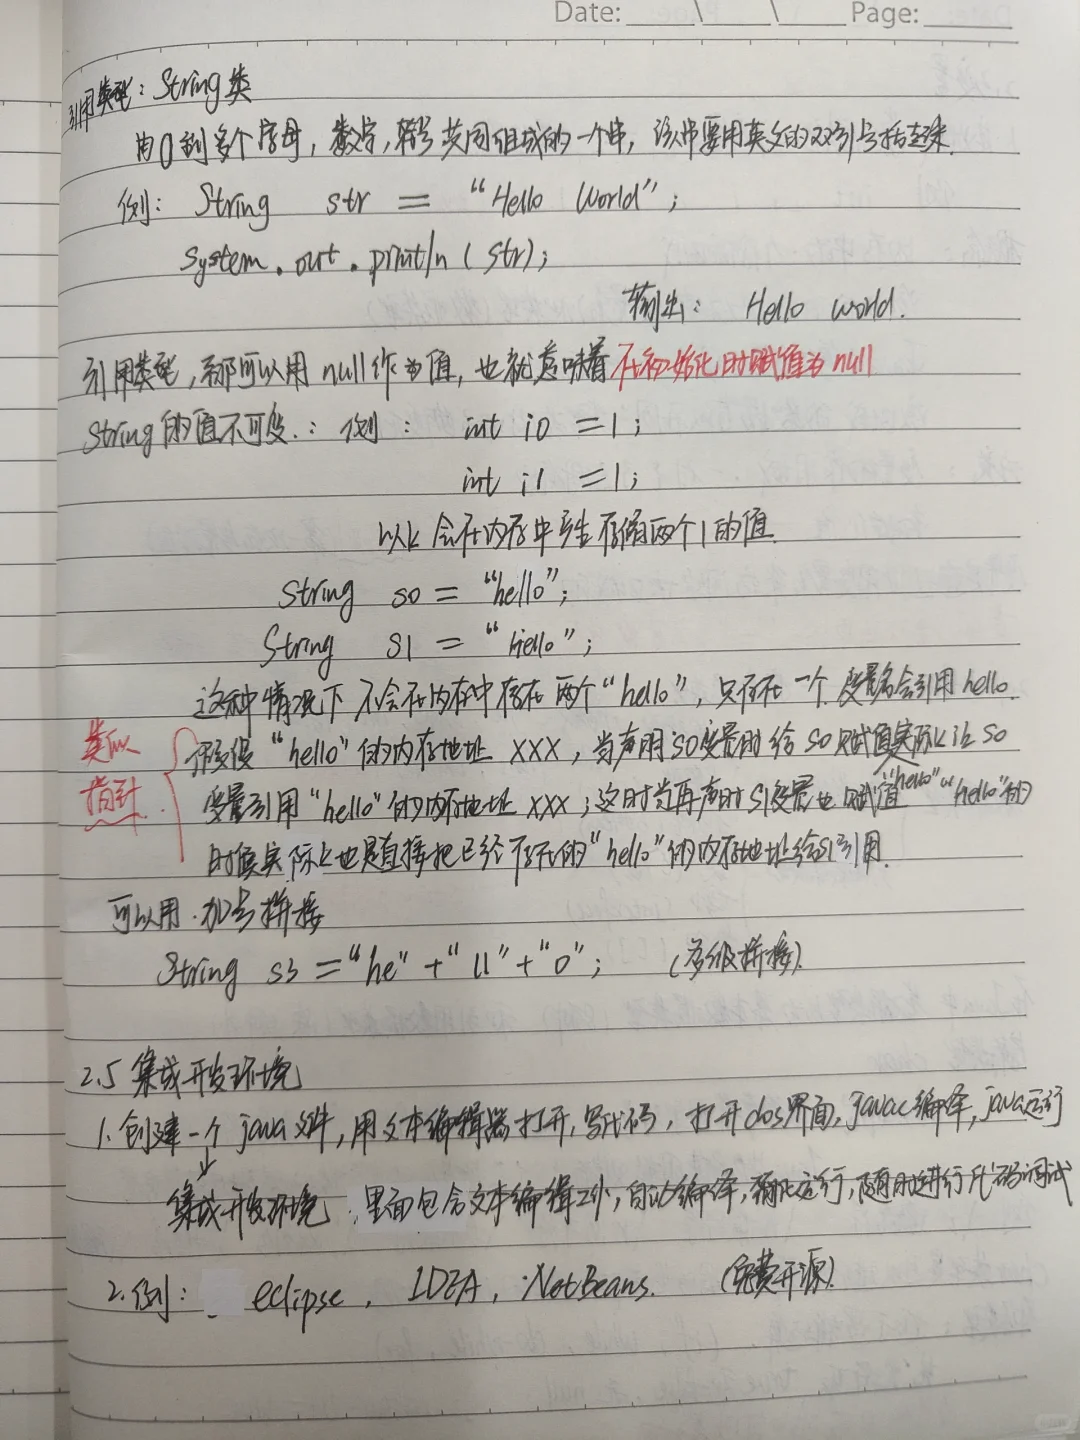 Date: ____\____\____Page:____
引用类型：String类
由0到多个字母，数字，符号共同组成的一个串，该串要用英文的双引号括起来.
例：String str = "Hello World";
System.out.println(str);
输出：Hello world.
引用类型，都可以用null作为值，也就意味着在初始化时赋值为null
String的值不可变.：例：int i0 =1;
int i1 =1;
以上会在内存中产生存储两个1的值.
String s0 = "hello";
String S1 = "hello";
这种情况下不会在内存中存在两个"hello"，只存在一个.变量名会引用hello.
类似
指针
假设"hello"的内存地址 XXX，当声明s0变量时给s0赋值实际上让s0
变量引用"hello"的内存地址XXX；这时当再声明S1变量也赋值"hello""hello"的
时候实际上也是直接把已经存在的"hello"的内存地址给S1引用.
可以用.加号拼接
String s3 ="he"+"ll"+"o"; (多级拼接).
2.5 集成开发环境
1.创建一个java文件，用文本编辑器打开，写代码，打开dos界面，javac编译，java运行
↓
集成开发环境.里面包含文本编辑工作，自动编译，运行，随时进行代码调试
2.例：eclipse，IDEA，NetBeans. (免费开源).